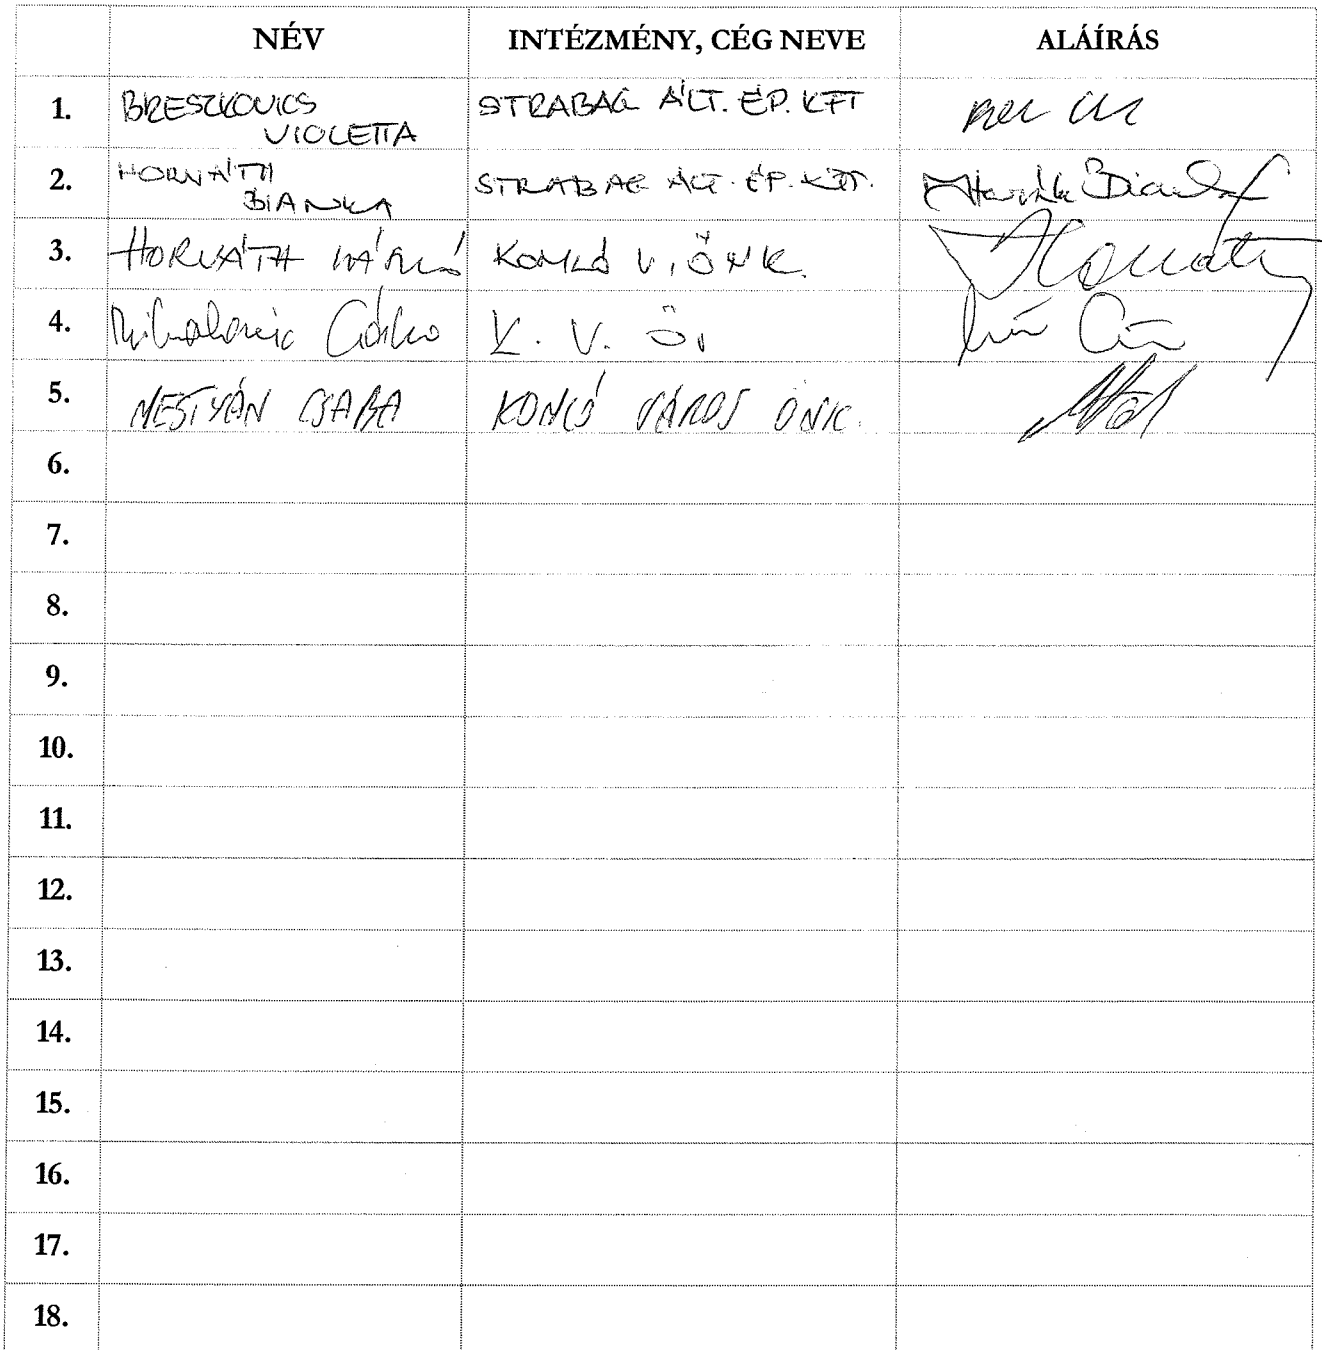 NÉV INTÉZMÉNY, CÉG NEVE ALÁÍRÁS
1. BRESZKOVICS VIOLETTA STRABAG ÁLT. ÉP. KFT
2. HORVÁTH BIANKA STRABAG ÁLT. ÉP. KFT. Horváth
3. HORVÁTH KOMLÓ V. ÖNK. Horváth
4. K. V. Ö.
5. MESTYÁN CSABA KOMLÓ VÁROS ÖNK.
6.
7.
8.
9.
10.
11.
12.
13.
14.
15.
16.
17.
18.